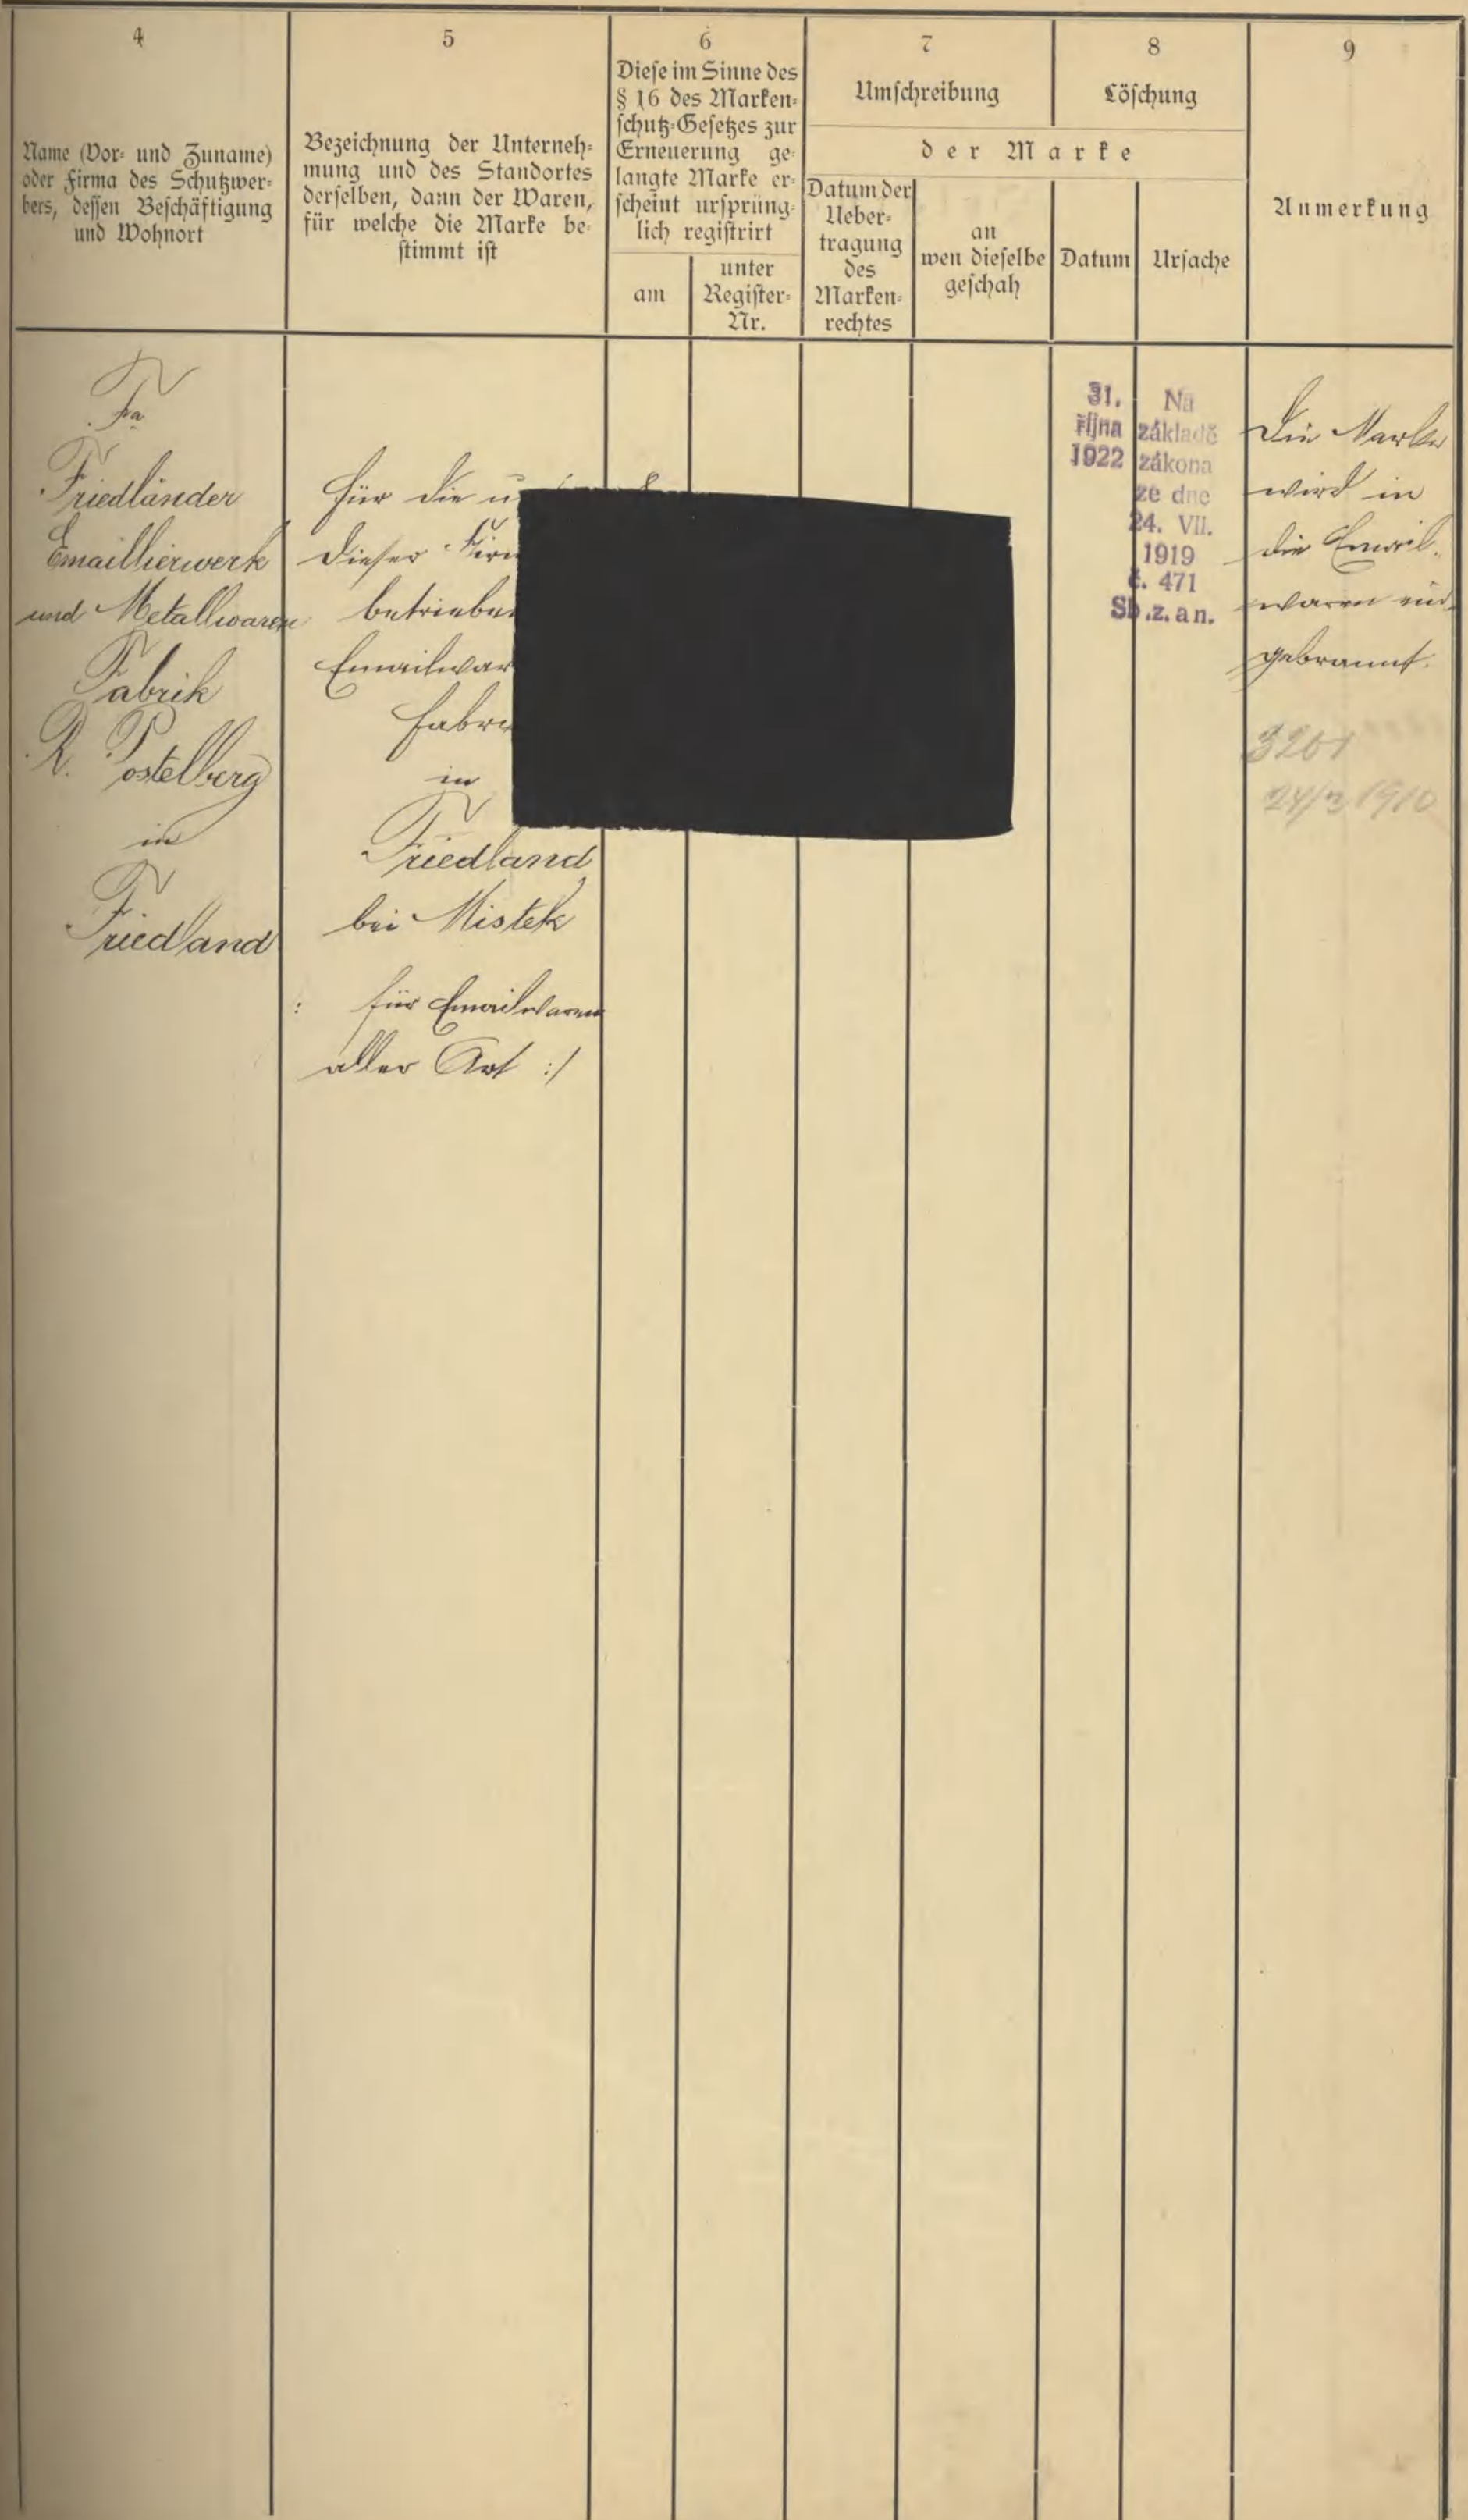 4
Name (Vor- und Zuname)
oder Firma des Schutzwer-
bers, dessen Beschäftigung
und Wohnort
5
Bezeichnung der Unterneh-
mung und des Standortes
derselben, dann der Waren,
für welche die Marke be-
stimmt ist
6
Diese im Sinne des
§ 16 des Marken-
schutz-Gesetzes zur
Erneuerung ge-
langte Marke er-
scheint ursprüng-
lich registrirt
am
unter
Register-
Nr.
7
Umschreibung
8
Löschung
der Marke
Datum der
Ueber-
tragung
des
Marken-
rechtes
an
wen dieselbe
geschah
Datum
Ursache
9
Anmerkung
Fa
Friedländer
Emaillierwerk
und Metallwaren
Fabrik
R. Postelberg
in
Friedland
für die
dieser
Friedland
in
bei Mistek
: für Emailwaren
aller Art :/
31.
října
1922
Na
základě
zákona
ze dne
24. VII.
1919
č. 471
Sb.z.an.
Die Marke
wird in
die Email-
waren ein-
gebrannt.